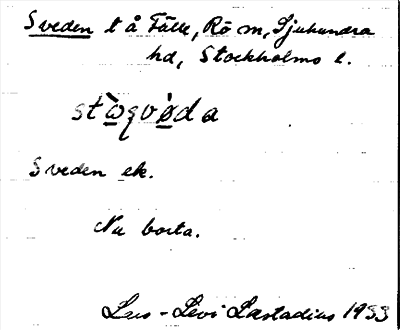 Sveden t å Fälle, Rö sn, Sjuhundra
hd, Stockholms l.
Sveden ek.
Nu borta.
Lars-Levi Læstadius 1953